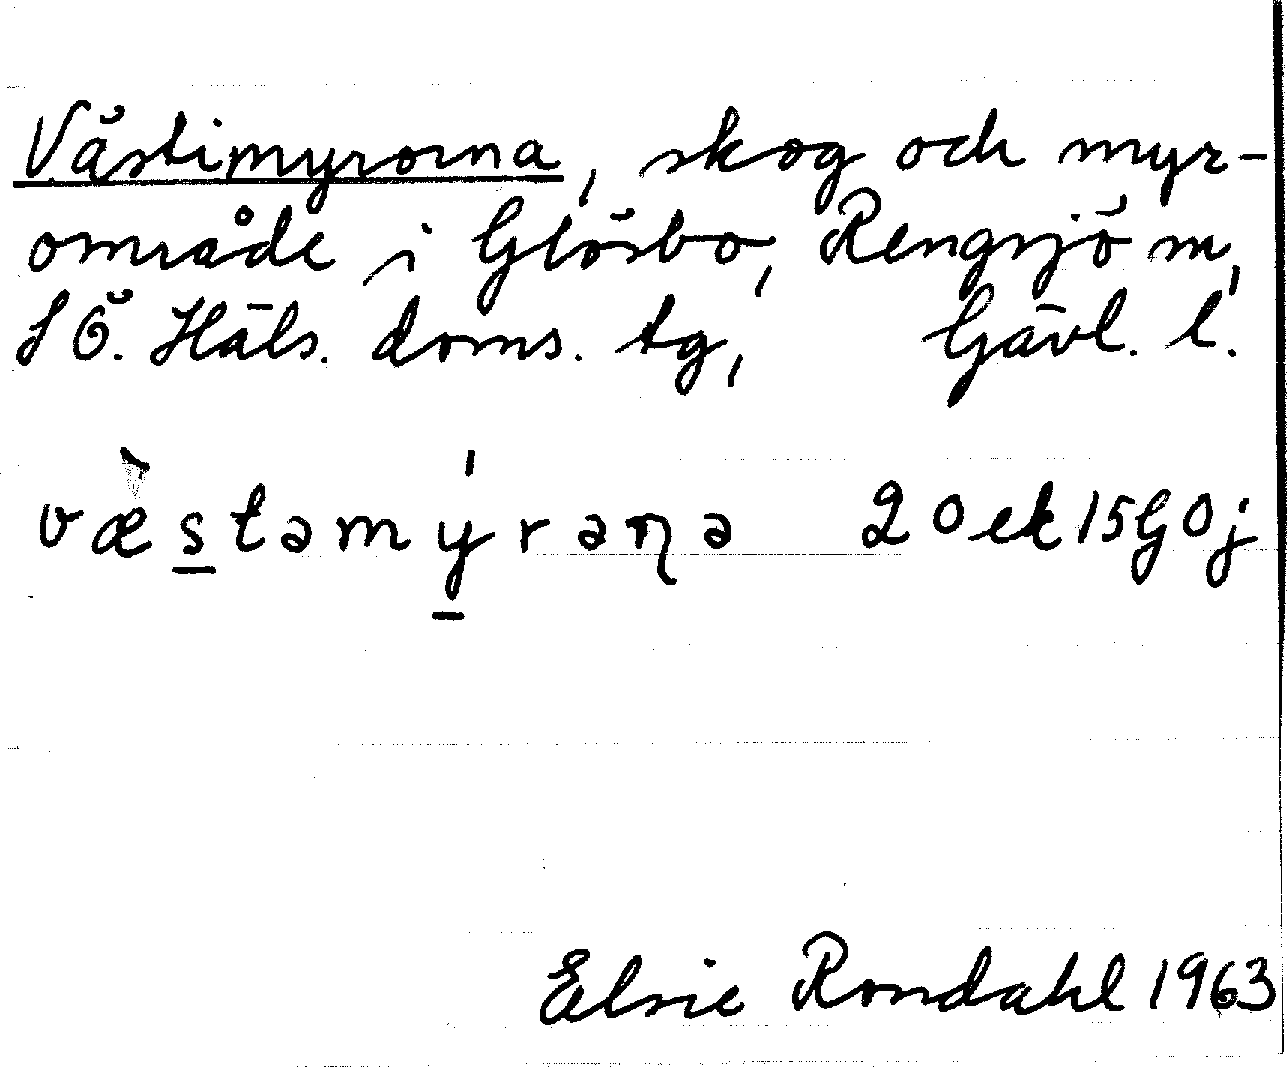 Västimyrorna, skog och myr-
område i Glösbo, Rengsjö sn,
SÖ. Häls. doms. tg, Gävl. l.
væ̀stəmýrəɳə 20ek15G0j
Elsie Rondahl 1963